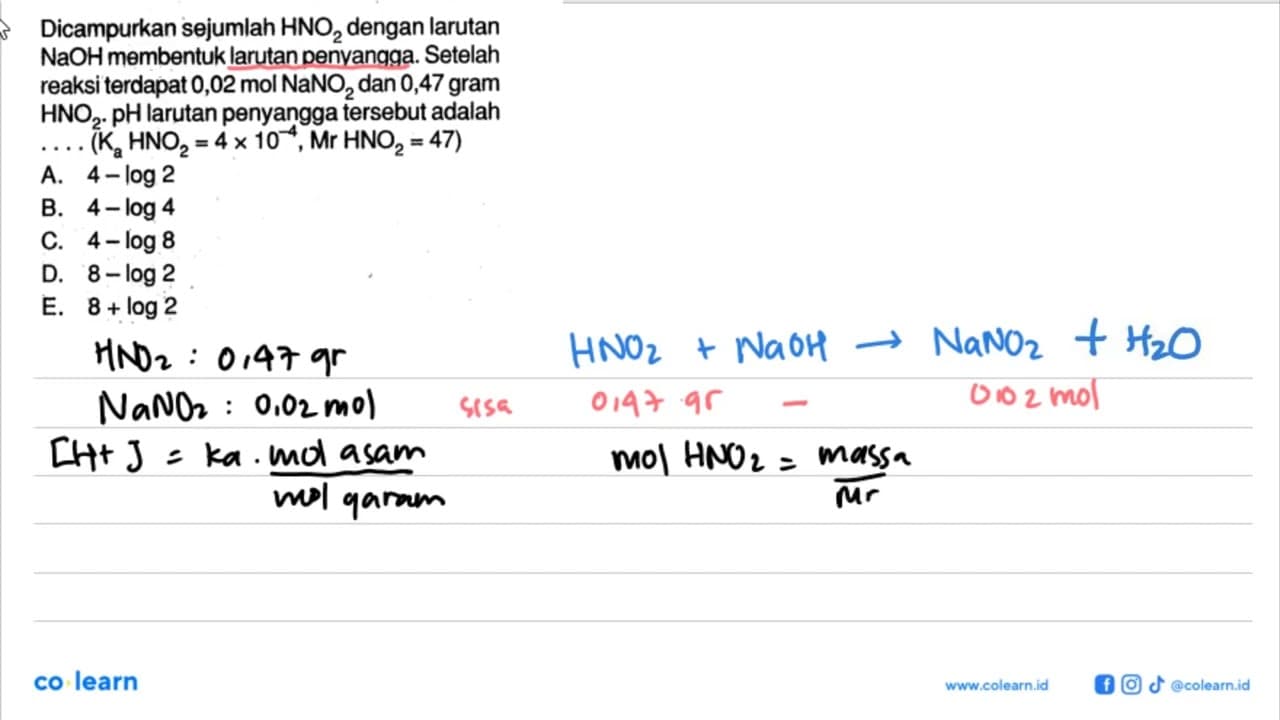 Dicampurkan sejumlah HNO₂ dengan larutan
NaOH membentuk larutan penyangga. Setelah
reaksi terdapat 0,02 mol NaNO₂ dan 0,47 gram
HNO₂. pH larutan penyangga tersebut adalah
.... (Kₐ HNO₂ = 4 × 10⁻⁴, Mr HNO₂ = 47)
A. 4 – log 2
B. 4 – log 4
C. 4 – log 8
D. 8 – log 2
E. 8 + log 2
HNO₂ : 0,47 gr
NaNO₂ : 0,02 mol
[H+] = ka . mol asam
mol garam
HNO₂ + NaOH → NaNO₂ + H₂O
sisa 0,47 gr – 0,02 mol
mol HNO₂ = massa
Mr
co learn
www.colearn.id
@colearn.id